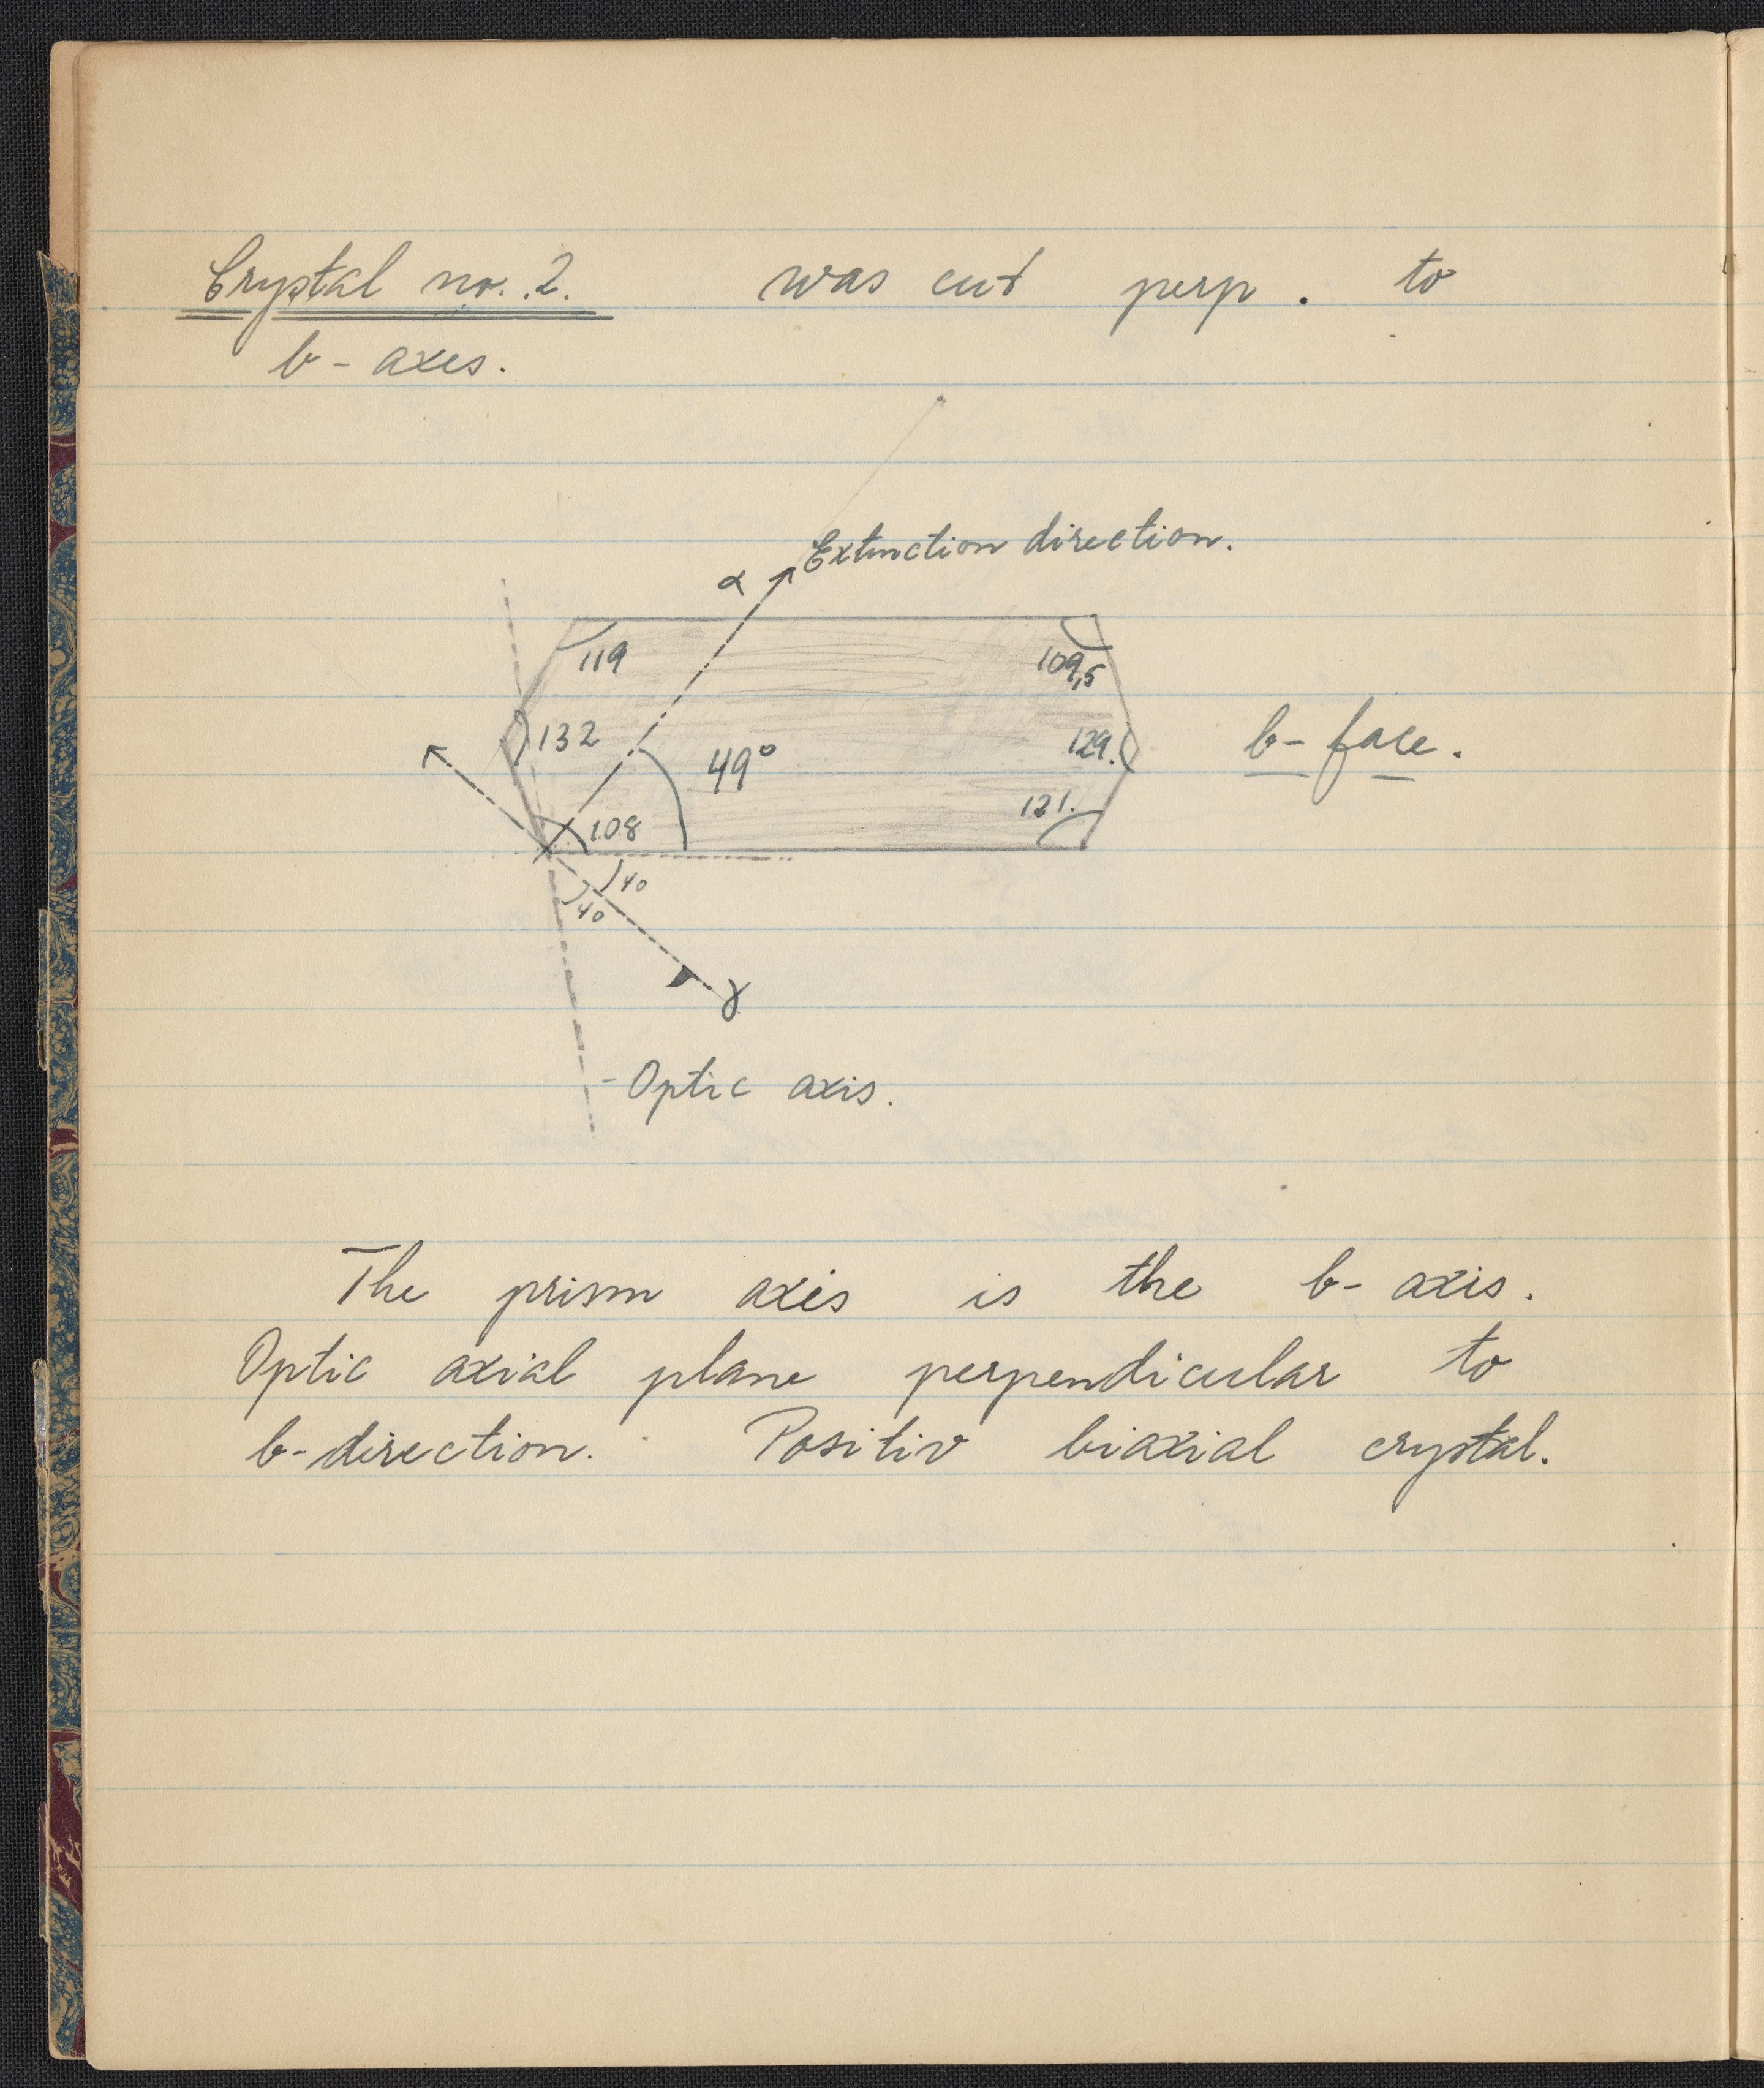 Crystal no. 2. was cut perp. to
b - axes.
α Extinction direction.
119
109,5
132
49°
129.
b - face.
108
121.
40
40
γ
- Optic axis.
The prism axis is the b - axis.
Optic axial plane perpendicular to
b - direction. Positiv biaxial crystal.